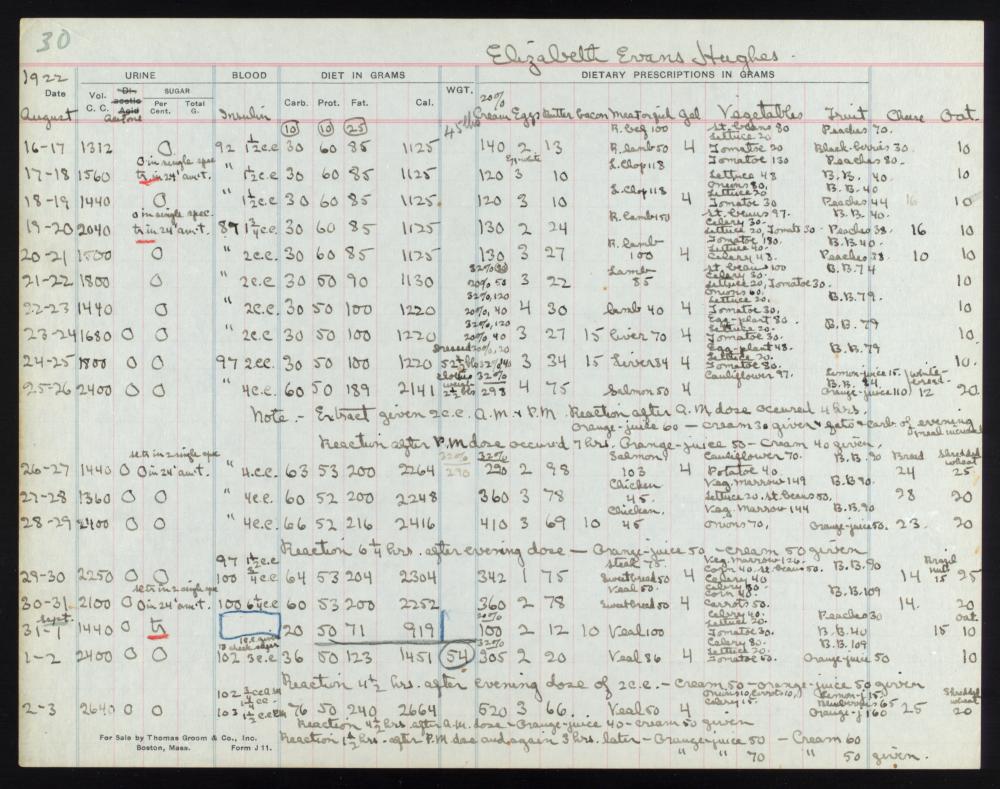 30
Elizabeth Evans Hughes.
1922 URINE BLOOD DIET IN GRAMS WGT. DIETARY PRESCRIPTIONS IN GRAMS
Date Vol. C. C. Di-acetic Acid Acetone SUGAR Per Cent. Total G. Insulin Carb. Prot. Fat. Cal. 20% Cream Eggs Butter Bacon Meat or fish gel Vegetables Fruit Oat.
August 10 10 25 45 lbs R. beef 100 St. beans 80 Peaches 70.
Lettuce 20
16-17 1312 0 92 1½ c.c. 30 60 85 1125 140 2 13 R. lamb 50 4 Tomatoe 20 Black-berries 30 10
0 in single spec Egg-white L. Chop 118 Tomatoe 130 Peaches 80.
17-18 1560 tr in 24° am't. " ½ c.c. 30 60 85 1125 120 3 10 Lettuce 48 B. B. 40. 10
Onions 80, B. B. 40
L. Chop 118 Lettuce 20
18-19 1440 0 " ½ c.c. 30 60 85 1125. 120 3 10 4 Tomatoe 30 Peaches 44 16 10
0 in single spec. R. lamb 50 St. beans 97. B. B. 40.
Celery 30.
19-20 2040 tr in 24° am't. 89 1¾ c.c. 30 60 85 1125 130 2 24 Lettuce 20, Tomato 30. Peaches 38. 16 10
R. lamb Tomatoe 130. B. B. 40.
Lettuce 40.
20-21 1500 0 " 2 c.c. 30 60 85 1125 130 3 27 100 4 Celery 48. Peaches 28. 10 10
Lamb St. beans 100 B. B. 74
Celery 30.
21-22 1800 0 " 2 c.c. 30 50 90 1130 20% 50 3 22 85 Lettuce 20, Tomatoe 30. 10
32%, 120 Onions 60.
Lettuce 20, B. B. 79.
22-23 1440 0 " 2 c.c. 30 50 100 1220 20%, 40 4 30 Lamb 40 4 Tomatoe 30, 10
32%, 120 Egg-plant 80. B. B. 79
Lettuce 20.
23-24 1680 0 0 " 2 c.c. 30 50 100 1220 20%, 40 3 27 15 Liver 70 4 Tomatoe 30. 10
Dressed 20%, 20 Egg-plant 48. B. B. 79
Lettuce 20.
24-25 1800 0 0 97 2 c.c. 30 50 100 1220 52½ lbs 3 34 15 Liver 34 4 Tomatoe 80. 10.
clothes weigh 2½ lbs 32% Cauliflower 97. Lemon-juice 15. White-bread.
B. B. 84.
25-26 2400 0 0 " 4 c.c. 60 50 189 2141 298 4 75 Salmon 50 4 Orange-juice 110 12 20
Note.- Extract given 2 c.c. A.M. & P.M. Reaction after A.M. dose occured 4 hrs.
Orange-juice 60 - cream 30 given & fats & carb. of evening meal increased
Reaction after P.M. dose occured 7 hrs. Orange-juice 50 - Cream 40 given,
32% 32% Salmon Cauliflower 70. B. B. 90 Bread Shredded wheat
26-27 1440 0 0 in 24° am't. " 4 c.c. 63 53 200 2264 290 290 2 98 103 4 Potatoe 40. 24 25
Chicken Veg. Marrow 149 B. B. 90.
27-28 1360 0 0 " 4 c.c. 60 52 200 2248 360 3 78 45. Lettuce 20. St. beans 50, 28 20
Chicken. Veg. Marrow 144 B. B. 90
28-29 2400 0 0 " 4 c.c. 66 52 216 2416 410 3 69 10 45 Onions 70, Orange-juice 50. 23. 20
Reaction 6¼ hrs. after evening dose - Orange-juice 50 - cream 50 given
97 1½ c.c. Steak 75. Veg. Marrow 126. B. B. 90 Brazil nut
Corn 40. St. beans 50.
29-30 2250 0 0 100 4 c.c. 64 53 204 2304 342 1 75 Sweetbread 50 4 Celery 40 14 15 25
Veal 50. Celery 30.
Corn 40. B. B. 109
30-31. 2100 0 0 in 24° am't. 100 6½ c.c. 60 53 200 2252 360 2 78 Sweetbread 50 4 Carrots 50. 14. 20
Sept. 20% Celery 40. Peaches 30 Oat.
Lettuce 20.
31-1 1440 0 tr 20 50 71 919 100 2 12 10 Veal 100 Tomatoe 30. B. B. 40 15 10
32% Celery 80. B. B. 109
Lettuce 20.
1-2 2400 0 0 102 3 c.c. 36 50 123 1451 54 305 2 20 Veal 86 4 Tomatoe 50. Orange juice 50 10
Reaction 4½ hrs. after evening dose of 2 c.c. - Cream 50 - orange-juice 50 given
102 Onions 10, Carrots 10, Lemon-j 15. Shredded wheat
Celery 15. Blueberries 65
2-3 2640 0 0 103 76 50 240 2664 520 3 66. Veal 50 4 Orange-j 160 25 20
Reaction 4½ hrs. after A.M. dose - Orange-juice 40 - cream 50 given
Reaction 1½ hrs. after P.M. dose and again 3 hrs. later - Orange-juice 50 - Cream 60
" " 70 " 50 given.
For Sale by Thomas Groom & Co., Inc.
Boston, Mass. Form J 11.